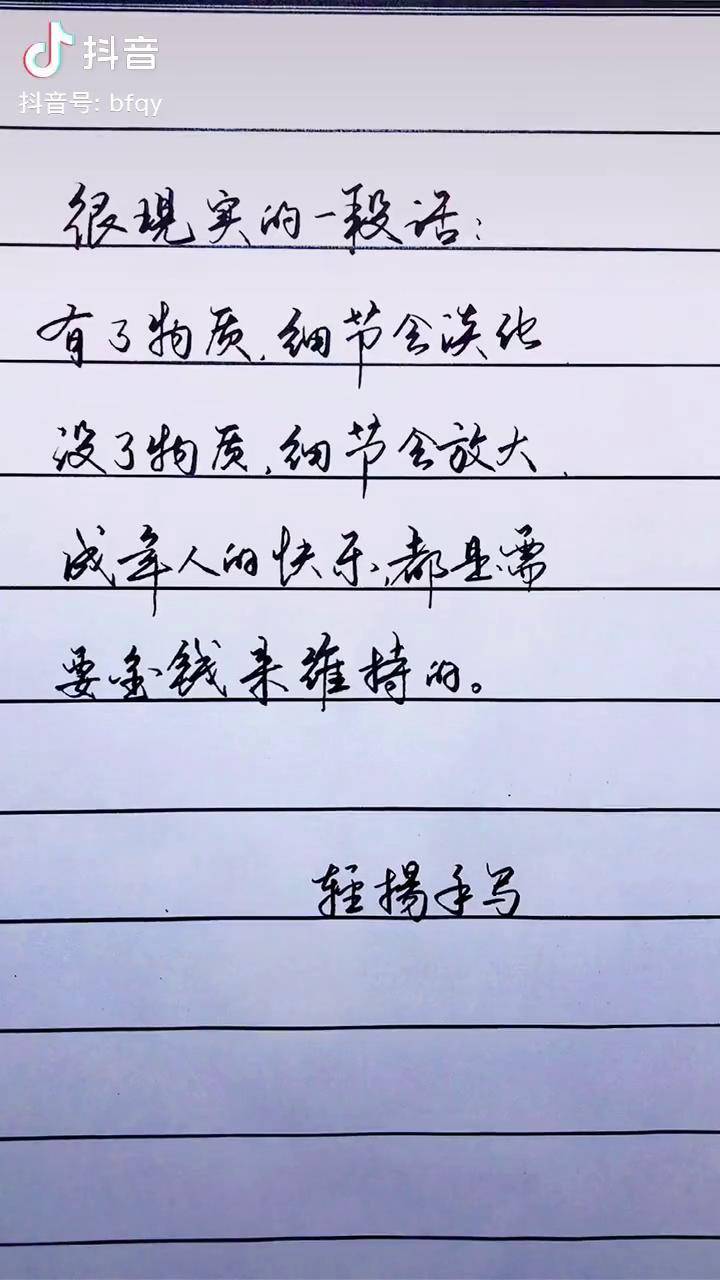 抖音
抖音号: bfqy
很現实的一段话:
有了物质,细节会淡化
没了物质,细节会放大.
成年人的快乐,都是需
要金钱来维持的。
轻揚手写